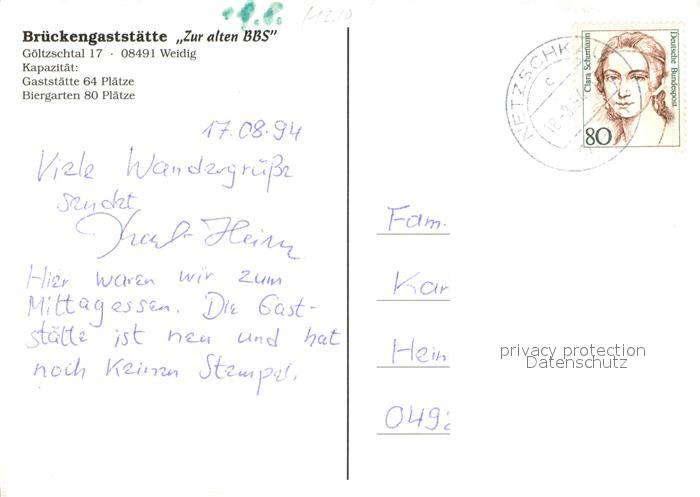 Brückengaststätte „Zur alten BBS"
Göltzschtal 17 · 08491 Weidig
Kapazität:
Gaststätte 64 Plätze
Biergarten 80 Plätze
17.08.94
Viele Wandergrüße
sendet
Karl-Heinz
Hier waren wir zum
Mittagessen. Die Gast-
stätte ist neu und hat
noch keinen Stempel.
NETZSCHK
c
18.-8.94
Clara Schumann
Deutsche Bundespost
80
Fam.
Kar
Hein
049
privacy protection
Datenschutz